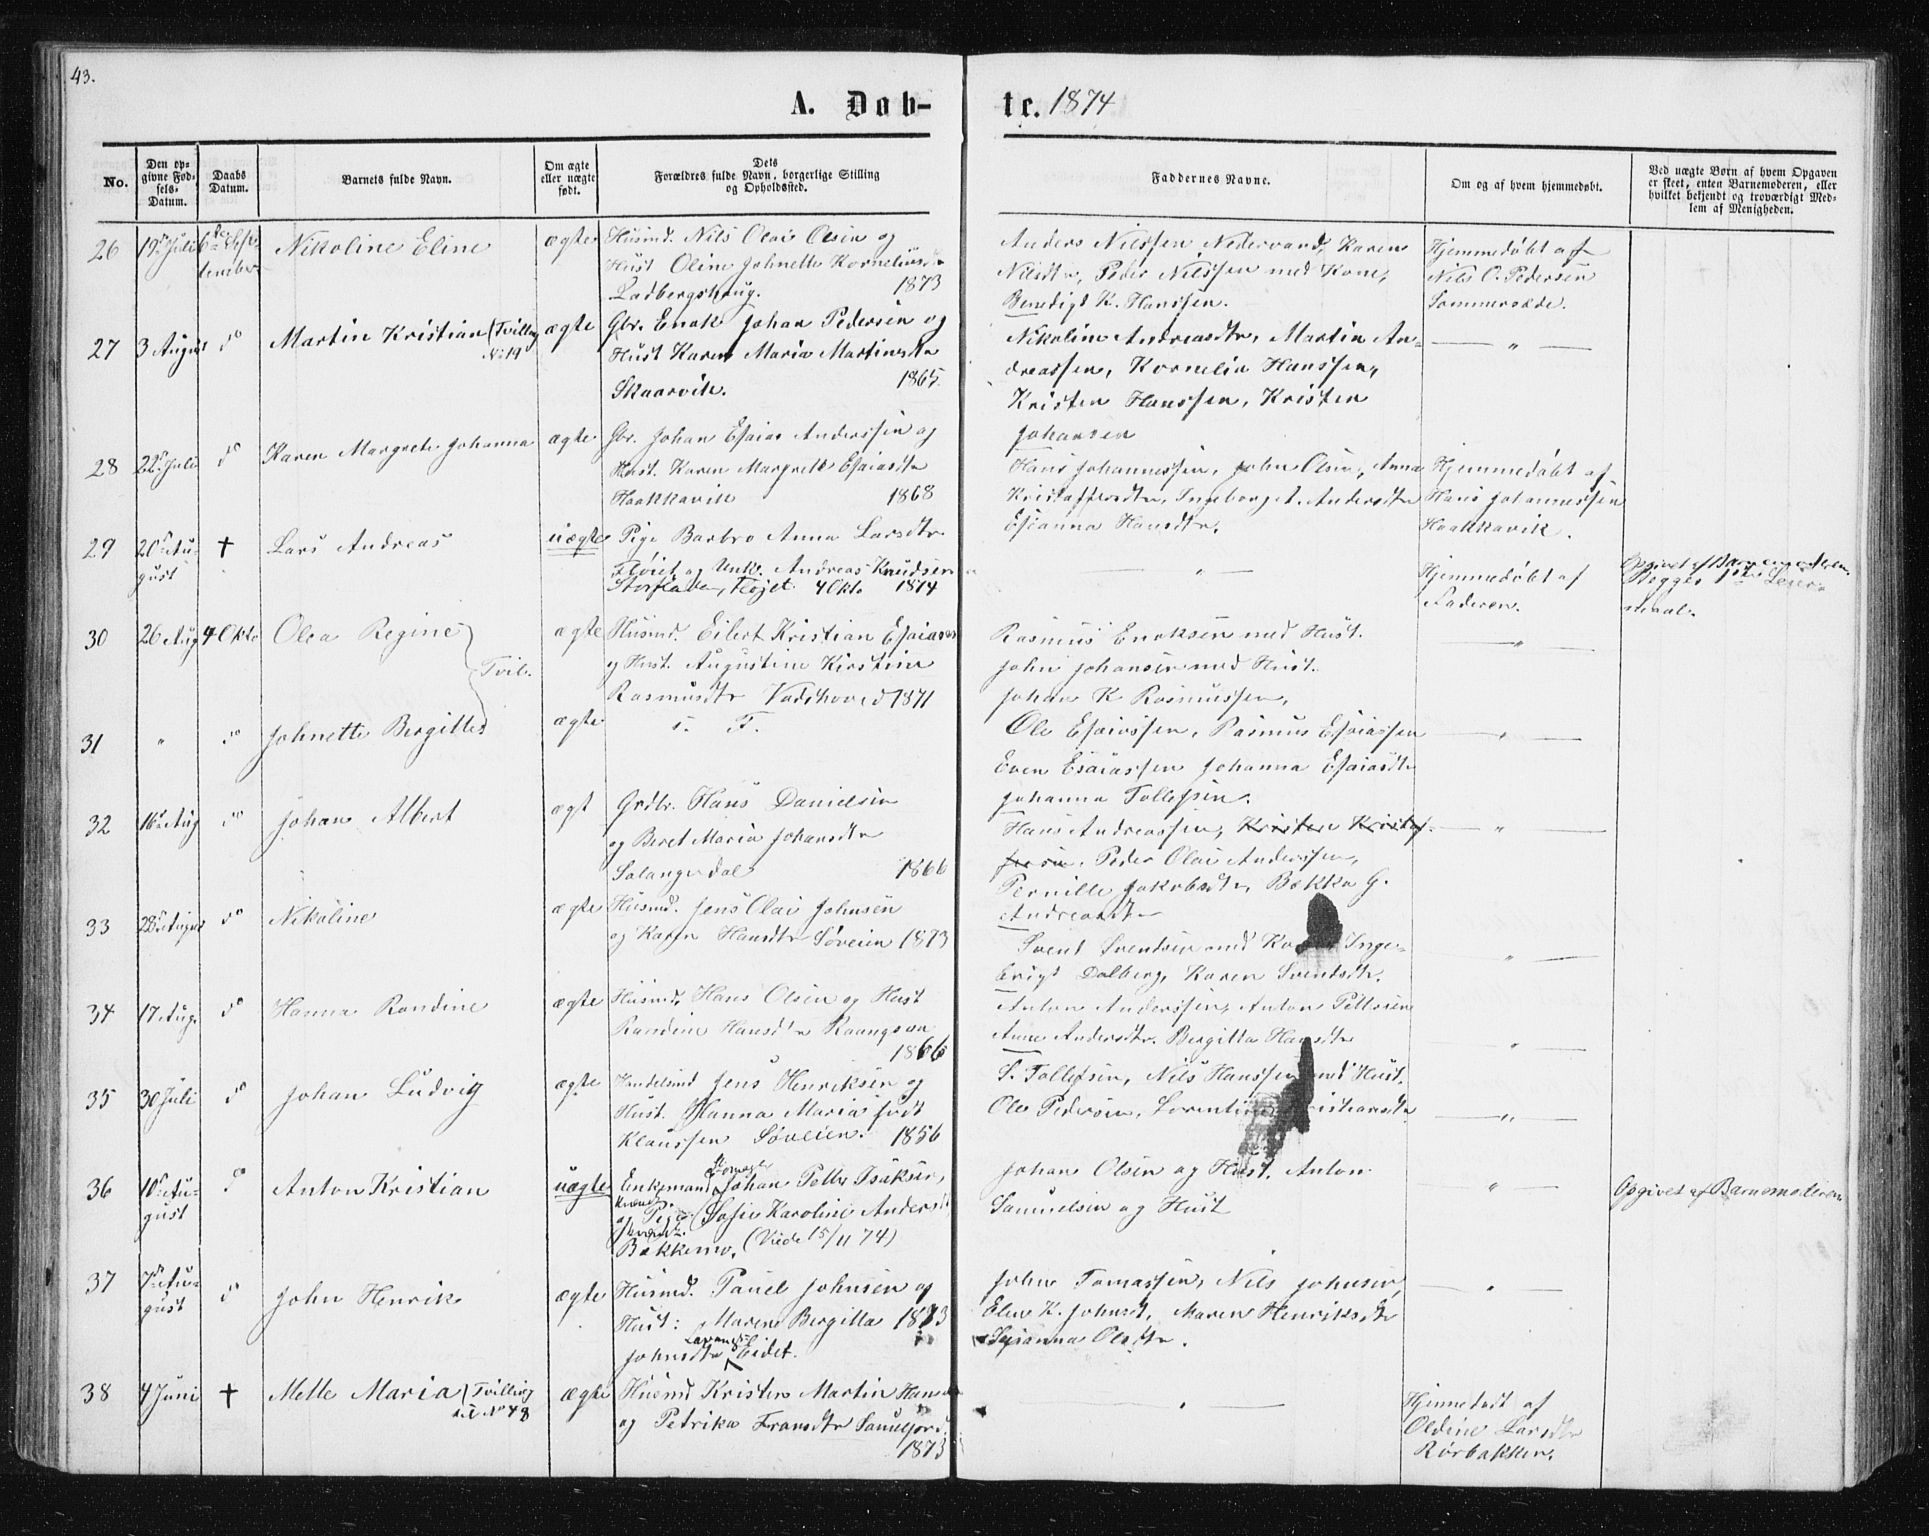 43.
A. Døb-
te. 1874
No.
Den op-
givne Fød-
sels-
Datum.
Daabs
Datum.
Barnets fulde Navn.
Om ægte
eller uægte
født.
Dets
Forældres fulde Navn, borgerlige Stilling
og Opholdssted.
Faddernes Navne.
Om og af hvem hjemmedøbt.
Ved uægte Børn af hvem Opgaven
er skeet, enten Barnemoderen, eller
hvilket bekjendt og troværdigt Med-
lem af Menigheden.
26 19de Juli 6te Sep-
tember
Nikoline Eline
ægte
Husmd. Nils Olai Olsen og
Hust Oline Johnette Kornelius
Ladbergshaug. 1873
Anders Nilssen Nedervand, Karen
Nilsdtr, Peder Nilssen med Kone,
Benedigt K. Hanssen.
Hjemmedøbt af
Nils O. Pedersen
Sommersæde.
27 3 August do
Martin Kristian (Tvilling
No 19
ægte
Gbr. Enok Johan Pedersen og
Hust Karen Maria Martinsdtr
Skaarvik. 1865
Nikoline Andreasdtr, Martin An-
dreassen, Kornelia Hanssen,
Kristen Hanssen, Kristen
Johansen
— " —
28 22de Juli do
Karen Margrete Johanna
ægte
Gbr. Johan Esaias Anderssen og
Hust. Karen Margrete Esaiasdtr
Haakkavik 1868
Hans Johannessen, John Olsen, Anna
Kristoffersdtr, Ingeborg A. Andersdtr
Esianna Hansdtr.
Hjemmedøbt af
Hans Johannessen
Haakkavik.
29 20de Au-
gust
†
Lars Andreas
uægte
Pige Barbro Anna Larsdtr
Fløiet og Unk. Andreas Knudsen
Storfladen, Fløjet 4 Okto 1874
— " —
Hjemmedøbt af
Faderen.
Opgivet af Barnemoderen.
Begges 1ste Leier-
maal.
30 26 Aug 4 Okto
Olea Regine
Tvil.
ægte
Husmd. Eilert Kristian Esaiassen
og Hust. Augustine Kirstine
Rasmusdtr Vadshoved 1871
Rasmus Enoksen med Hust.
John Johansen med Hust.
Johan K Rasmussen,
— " —
31 " do
Johnette Bergitte
ægte
s. F.
Ole Esaiassen, Rasmus Esaiassen
Even Esaiassen Johanna Esaiasdtr
Johanna Tollefsen.
— " —
32 16de Aug do
Johan Albert
ægt
Grdbr. Hans Danielsen
og Beret Maria Johansdtr
Salangsdal 1866
Hans Andreassen, Kristen Kristof-
fersen, Peder Olai Anderssen,
Pernille Jakobsdtr, Bekka G.
Andreasdtr
— " —
33 28de August do
Nikoline
ægte
Husmd. Jens Olai Johnsen
og Karen Hansdtr Søveien 1873
Svent Sventsen med Kone Inge-
brigt Dalberg, Karen Sventsdtr.
— " —
34 17 Aug. do
Hanna Randine
ægte
Husmd. Hans Olsen og Hust
Randine Hansdtr Raangsaa
1866
Anton Anderssen, Anton Pettersen
Anne Andersdtr. Bergitta Hansdtr
— " —
35 30 Juli do
Johan Ludvig
ægte
Handelsmd Jens Henriksen og
Hust. Hanna Maria født
Klaussen Søveien. 1856
S. Tollefsen, Nils Hanssen med Hust.
Ole Pedersen, Lorentine Kristiansdtr
— " —
36 10de Au-
gust
do
Anton Kristian
uægte
Enkemand Johan Petter Isaksen,
og Pige Sofie Karoline Andersdtr
Bakkemo. (Viede 15/11 74)
Johan Olsen og Hust. Anton
Samuelsen og Hust
— " —
Opgivet af Barnemoderen
37 7de Au-
gust
do
John Henrik
ægte
Husmd. Paul Johnsen og
Hust: Maren Bergitta 1873
Johnsdtr Lavangs Eidet.
John Tomassen, Nils Johnsen,
Elen K. Johnsdt, Maren Henriksdtr
Susanna Olsdtr.
— " —
38 4 Juni †
Mette Maria (Tvilling
til No 48
ægte
Husmd Kristen Martin Hansen
og Petrika Fransdtr
1873
— " —
Hjemmedøbt af
Oldine Larsdtr
Rørbakken.